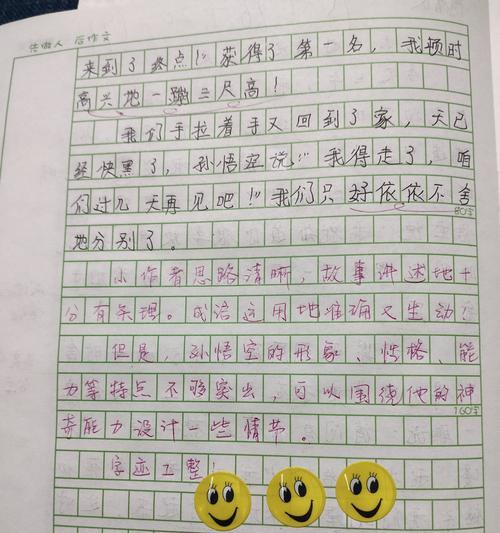 先做人 后作文
来到了终点!”获得了第一名，我顿时
高兴地一蹦三尺高!
我们手拉着手又回到了家，天已
经快黑了，孙悟空说:“我得走了，咱
们过几天再见吧!”我们只好依依不舍
80字
地分别了。
小作者思路清晰，故事讲述地十
分有条理。成语运用地准确又生动!
但是，孙悟空的形象、性格、能
力等特点不够突出，可以围绕他的神
160字
奇能力设计一些情节。
字迹工整!